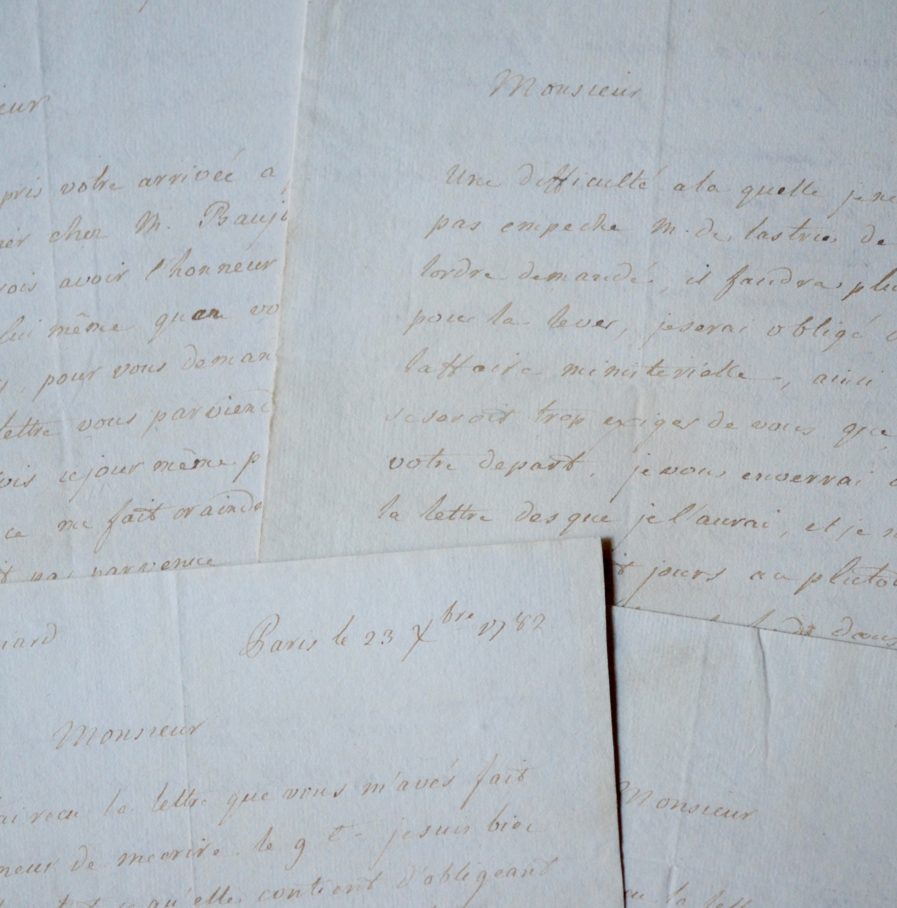 ieur
pris votre arrivée a
chez M.
rois avoir l'honneur
lui même quan vo
pour vous deman
lettre vous parvienc
ois cejour même p
ce me fait craindre
pas parvenue
Monsieur
Une difficulté ala quelle je ne
pas empeche M. de lastries de
lordre demandé, il faudra plu
pour la lever, jeserai obligé
laffaire ministerielle, ainsi
seseroit trop exiger de vous que
votre depart. je vous enverrai
la lettre desque je l'aurai, et je
jours au plutot
dans
iard
Paris le 23 Xbre 1782
Monsieur
ai recu la lettre que vous m'avés fait
neur de mecrire le 9 jesuis bien
qu'elle contient d'obligeant
Monsieur
la lett